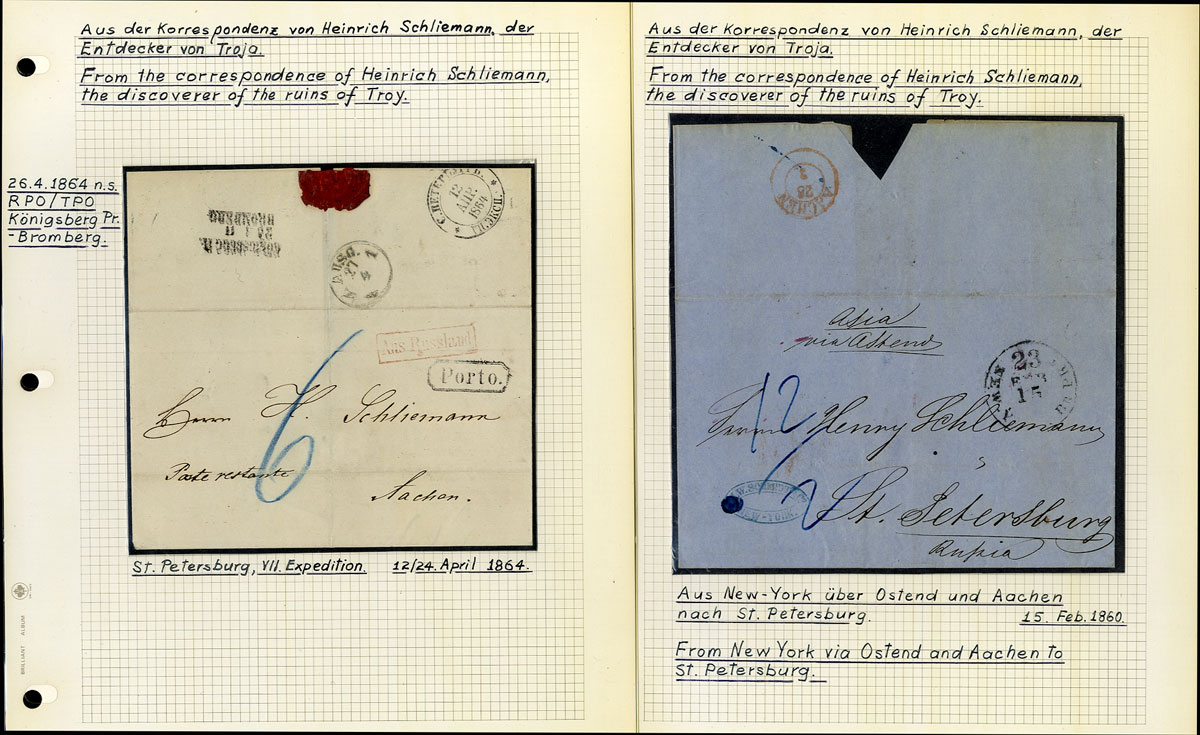 Aus der Korrespondenz von Heinrich Schliemann, der
Entdecker von Troja.
From the correspondence of Heinrich Schliemann,
the discoverer of the ruins of Troy.
26.4.1864 n.s.
RPO/TPO
Königsberg Pr.
-Bromberg.
BROMBERG
С.ПЕТЕРБУРГЪ.
12
АПР.
1864
27
4
Aus Russland
Porto.
6
Herrn H. Schliemann
Poste restante
Aachen.
St. Petersburg, VII. Expedition. 12/24. April 1864.
BRILLIANT ALBUM
Aus der Korrespondenz von Heinrich Schliemann, der
Entdecker von Troja.
From the correspondence of Heinrich Schliemann,
the discoverer of the ruins of Troy.
AACHEN
28
2
Asia
via Ostend
23
15
12
Herrn Henry Schliemann
St. Petersburg
Russia
Aus New-York über Ostend und Aachen
nach St. Petersburg. 15. Feb. 1860.
From New York via Ostend and Aachen to
St. Petersburg.